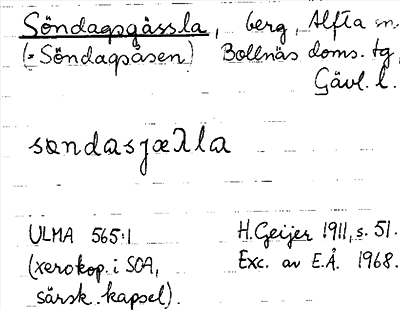 Söndagsgässla, berg, Alfta sn.
(= Söndagsåsen) Bollnäs doms. tg,
Gävl. l.
söndasjæλla
ULMA 565:1 H. Geijer 1911, s. 51.
(xerokop. i SOA, Exc. av E.Å. 1968.
särsk. kapsel).